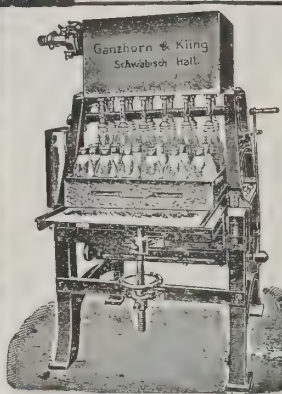 Ganzhorn & Kling
Schwäbisch Hall.